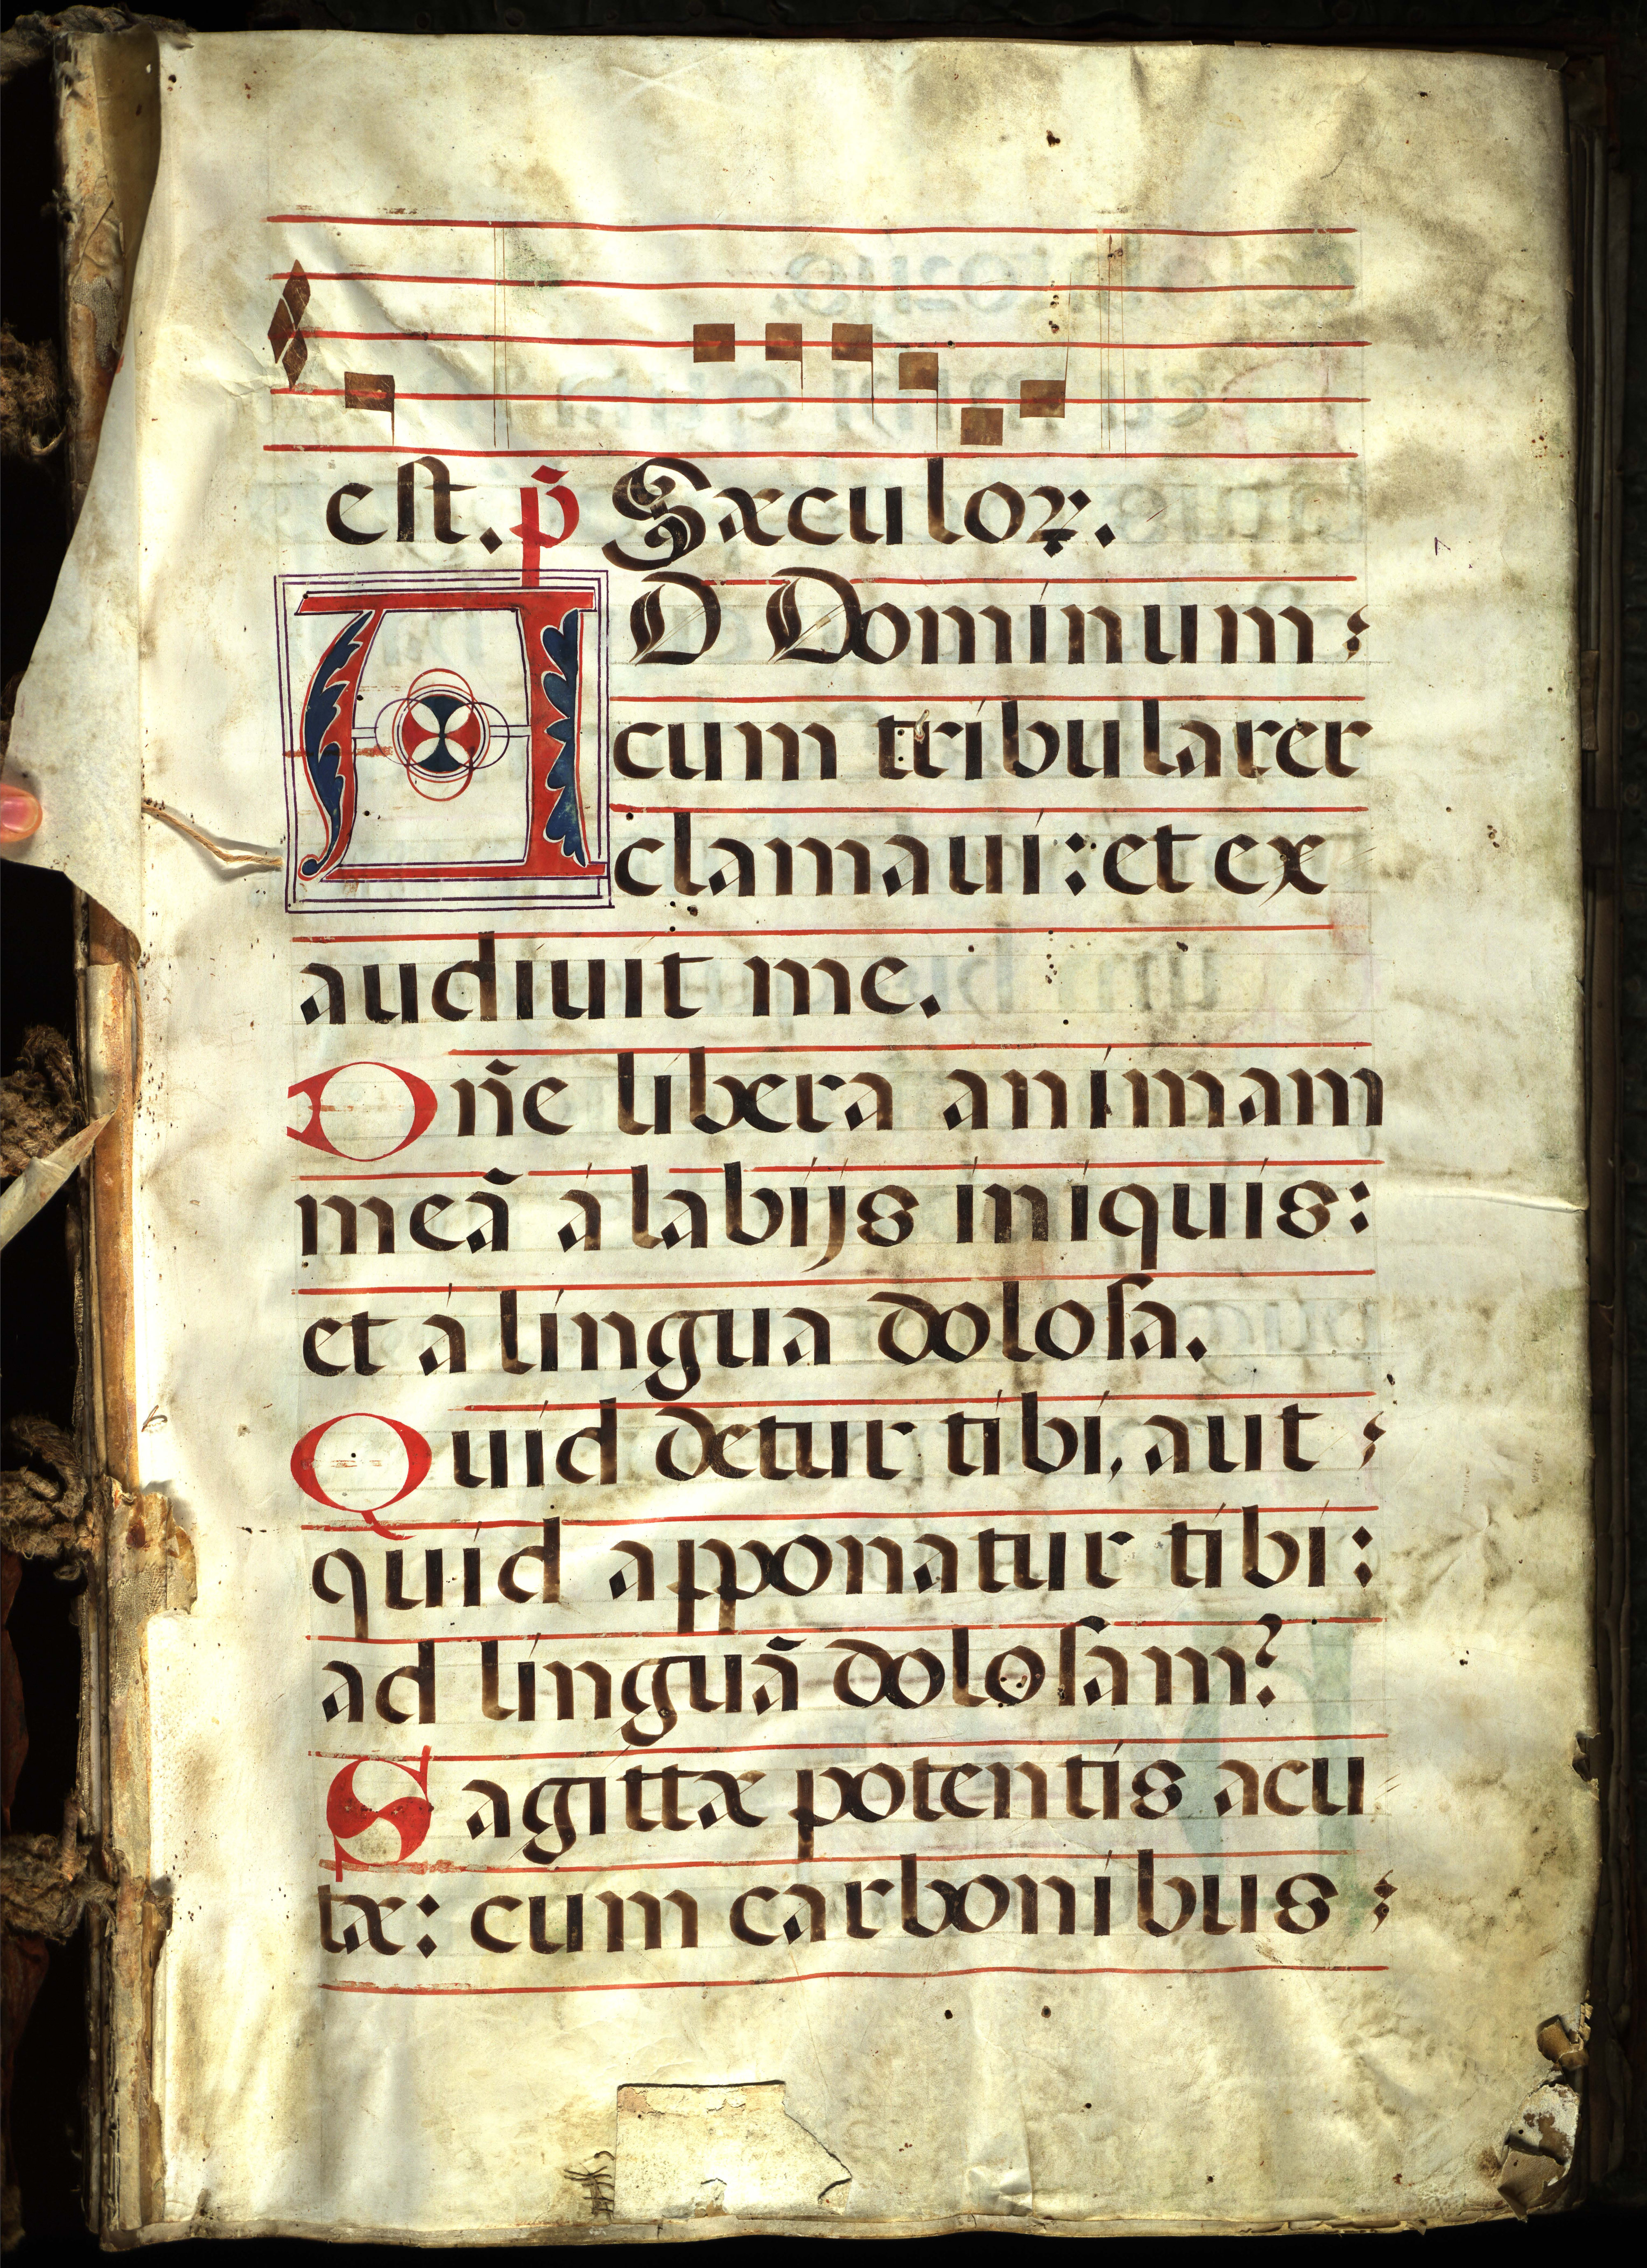 est. p̄ Sæculoꝝ.
AD Dominum
cum tribularer
clamaui: et ex
audiuit me.
Dñe libera animam
meā à labijs iniquis:
et à lingua doloſa.
Quid detur tibi, aut
quid apponatur tibi:
ad linguā doloſam?
Sagittæ potentis acu
tæ: cum carbonibus